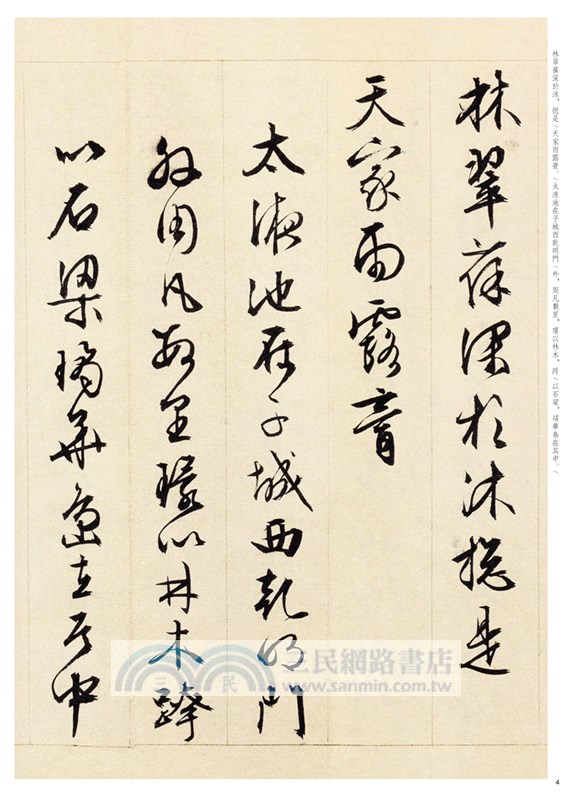 林翠葆深於沐總是
天家雨露膏
太液池在子城西乾明門
外周凡數里環以林木跨
以石梁瓊華島在其中
林翠葆深於沐,總是╲天家雨露膏。╲太液池在子城西乾明門╲外,周凡數里,環以林木,跨╲以石梁,瓊華島在其中,╲
三民網路書店
www.sanmin.com.tw
三 民
4